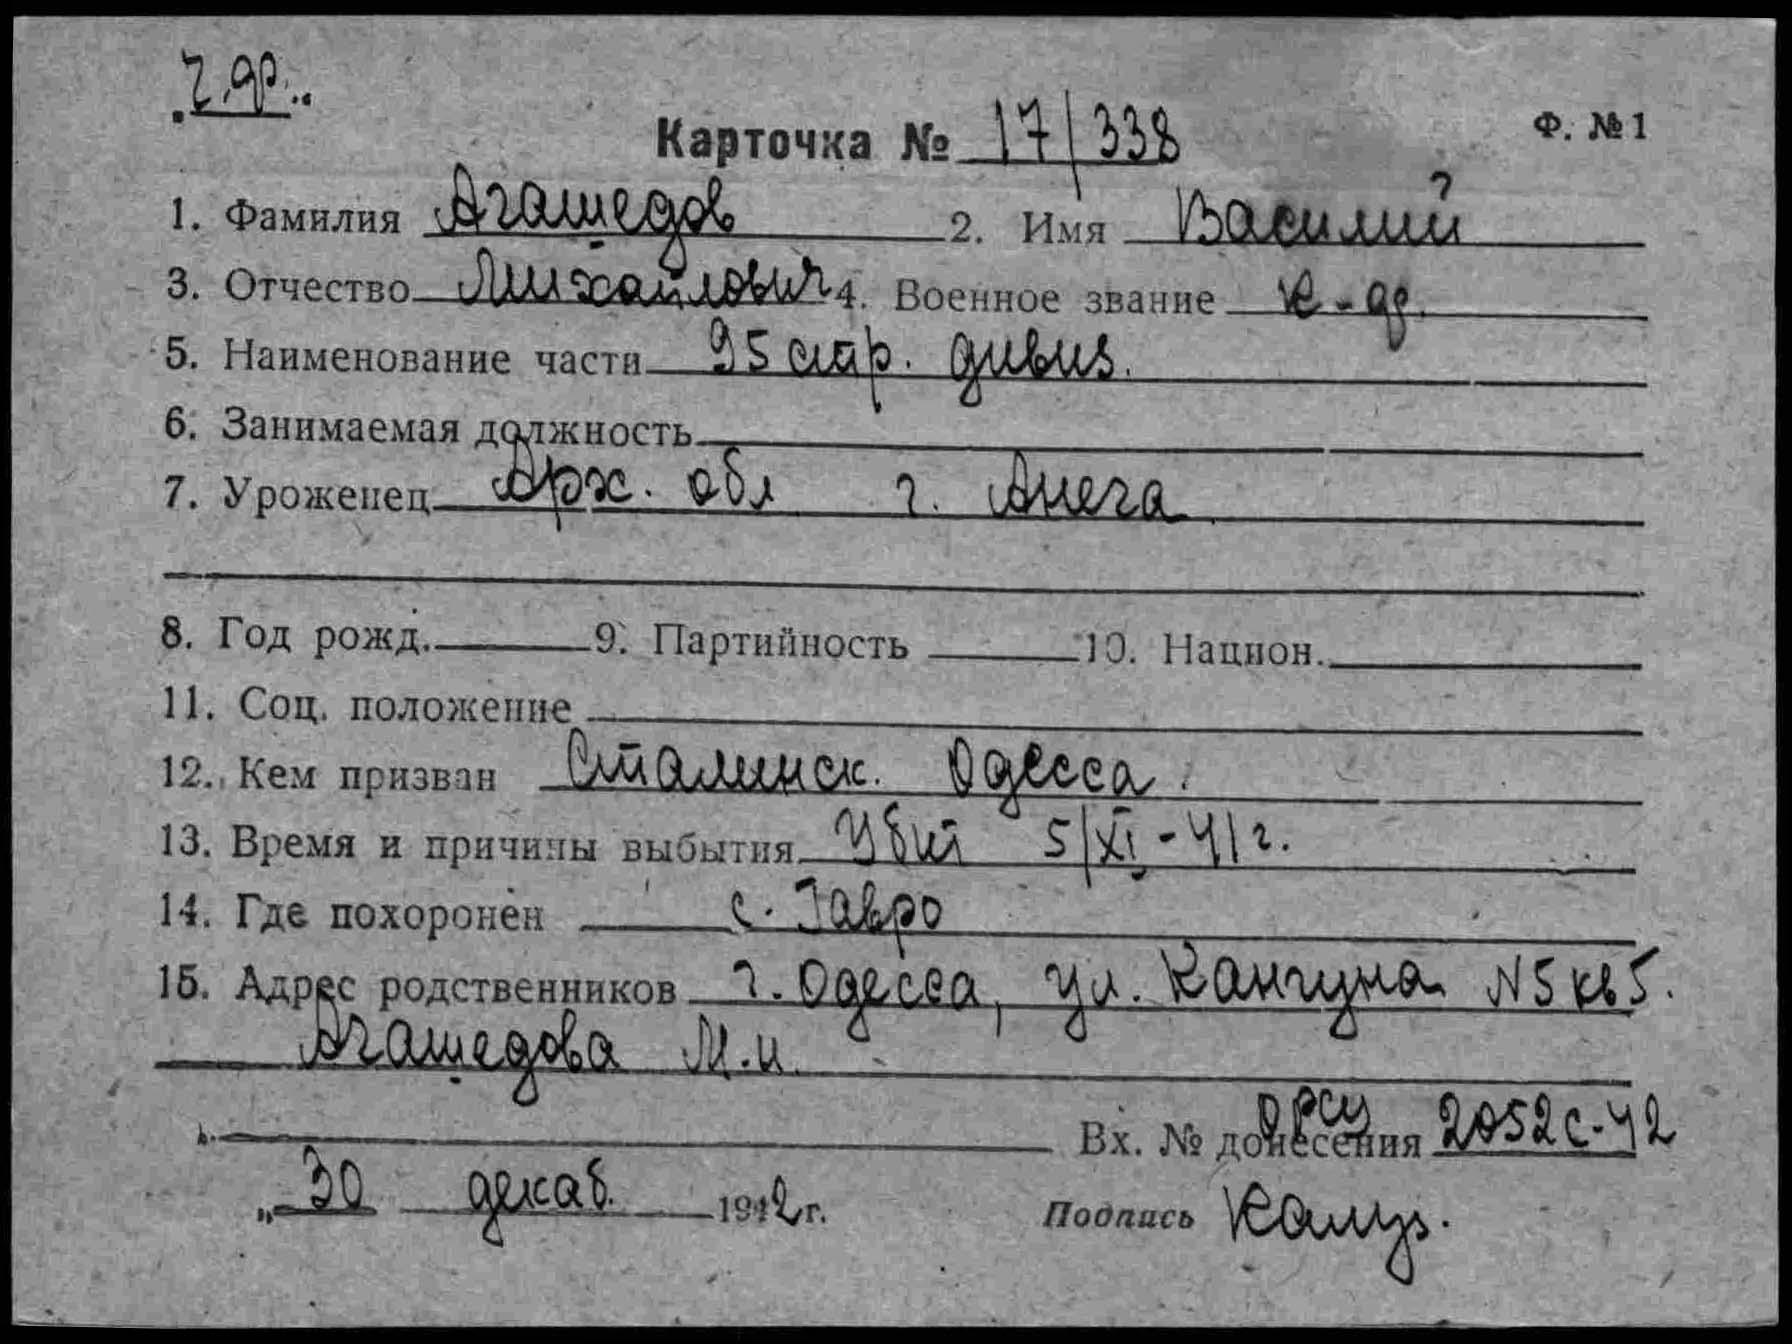 Карточка № 17/338
Ф. № 1
1. Фамилия Агашедов 2. Имя Василий
3. Отчество Михайлович 4. Военное звание к-др.
5. Наименование части 95 стр. дивиз.
6. Занимаемая должность
7. Уроженец Арх. обл г. Анега
8. Год рожд. 9. Партийность 10. Национ.
11. Соц. положение
12. Кем призван Сталинск. Одесса.
13. Время и причины выбытия Убит 5/XI-41 г.
14. Где похоронен с. Тавро
15. Адрес родственников г. Одесса, ул. Кангуна N5 кв 5.
Агашедова М.И.
Вх. № донесения 2052с-42
„30 декаб. 1942 г.
Подпись